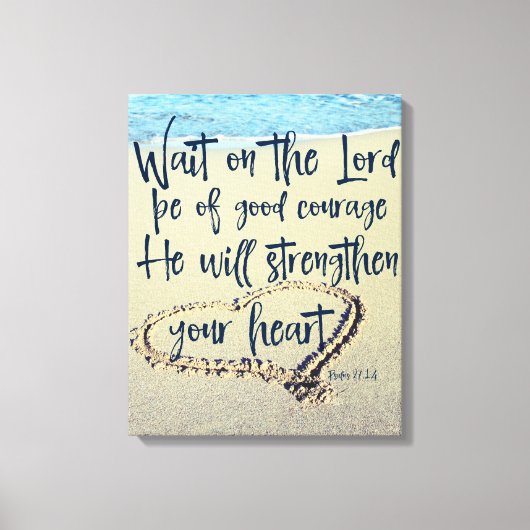 Wait on the Lord
be of good courage
He will strengthen
your heart
Psalm 27:14